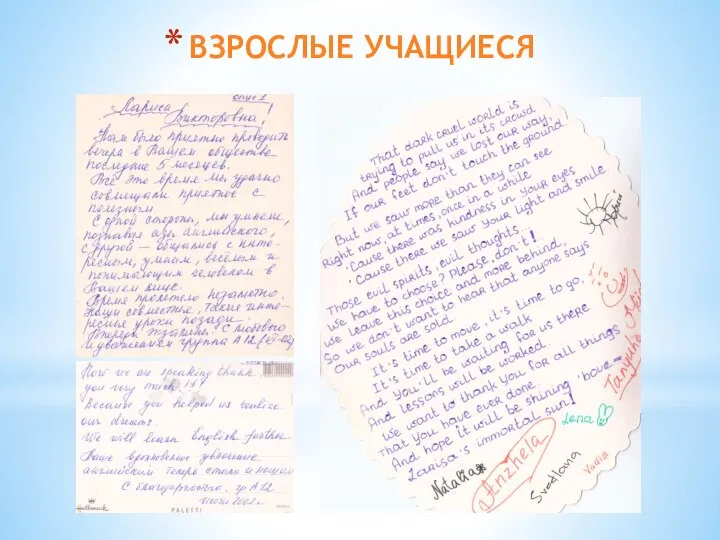 * ВЗРОСЛЫЕ УЧАЩИЕСЯ
Лариса
Викторовна!
Нам было приятно проводить
вечера в Вашем обществе
последние 5 месяцев.
Всё это время мы удачно
совмещали приятное с
полезным.
С одной стороны, мы учили,
познавая азы английского,
с другой – общались с инте-
ресным, умным, весёлым и
понимающим человеком в
Вашем лице.
Время пролетело незаметно.
Наши совместные, такие инте-
ресные уроки позади...
Впереди экзамены. С любовью
и уважением группа А12
Now we are speaking thank
you very much!!!
Because you helped us realize
our dreams.
We will learn English further
Ваше вдохновенное увлечение
английским теперь стало и нашим
С благодарностью, гр А12
2002г
Hallmark
PALETTI
That dark cruel world is
trying to pull us in its crowd
And people say we lost our way,
If our feet don't touch the ground
But we saw more than they can see
Right now, at times, once in a while
'Cause there was kindness in your eyes
'Cause there we saw your light and smile
Those evil spirits, evil thoughts...
We have to choose? Please, don't!
We leave this choice and more behind,
So we don't want to hear that anyone says
Our souls are sold
It's time to move, it's time to go,
It's time to take a walk
And you'll be waiting for us there
And lessons will be worked.
We want to thank you for all things
That you have ever done
And hope it will be shining 'bove –
Larisa's immortal sun!
Natalia
Anzhela
Svetlana
Yulia
Lena
Tanyusha